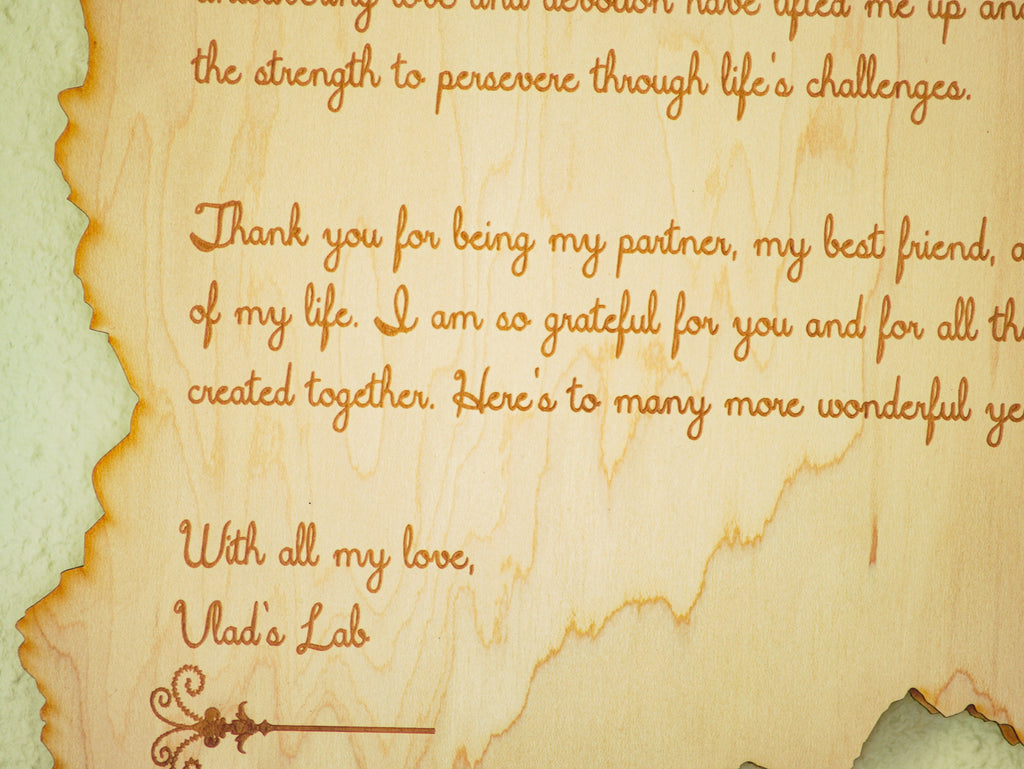 unwavering love and devotion have lifted me up and
the strength to persevere through life's challenges.
Thank you for being my partner, my best friend,
of my life. I am so grateful for you and for all
created together. Here's to many more wonderful
With all my love,
Vlad's Lab